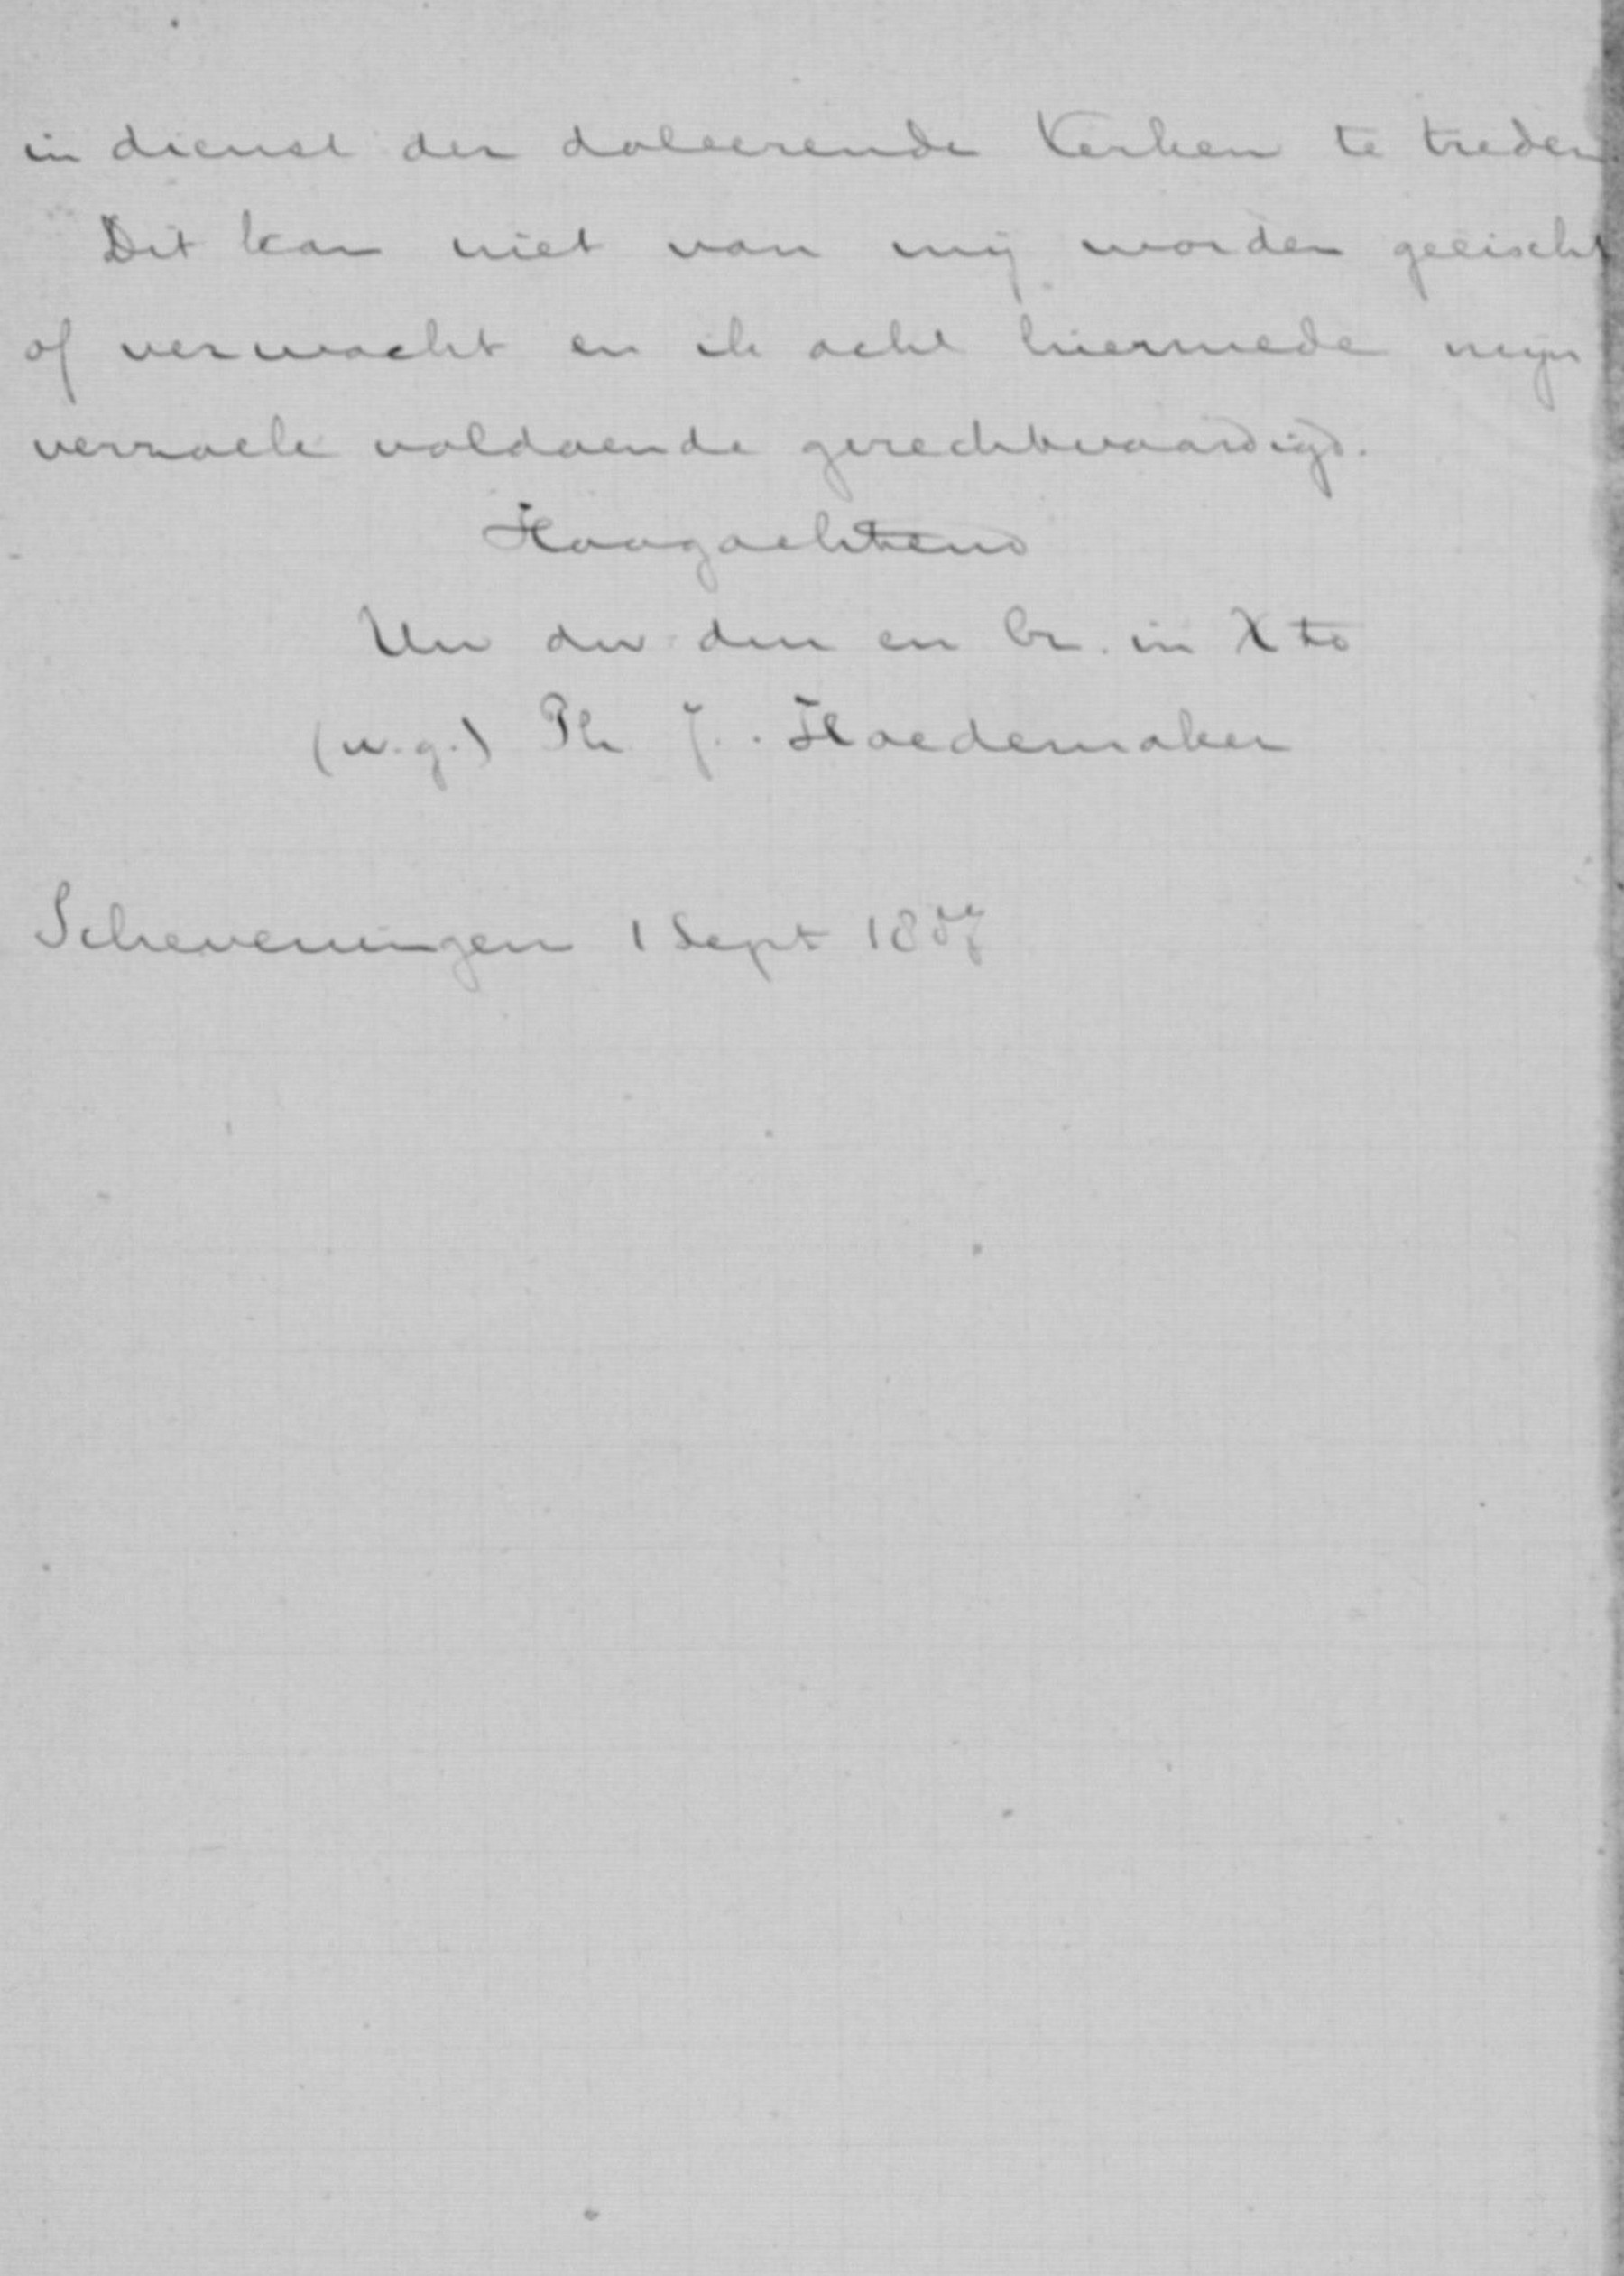 in dienst der doleerende Kerken te treden.
Dit kan niet van mij worden geëischt
of verwacht en ik acht hiermede mijn
verzoek voldoende gerechtvaardigd.
Hoogachtend
Uw dw dnr en br. in Xto
(w.g.) Ph J. Hoedemaker
Scheveningen 1 Sept 1887